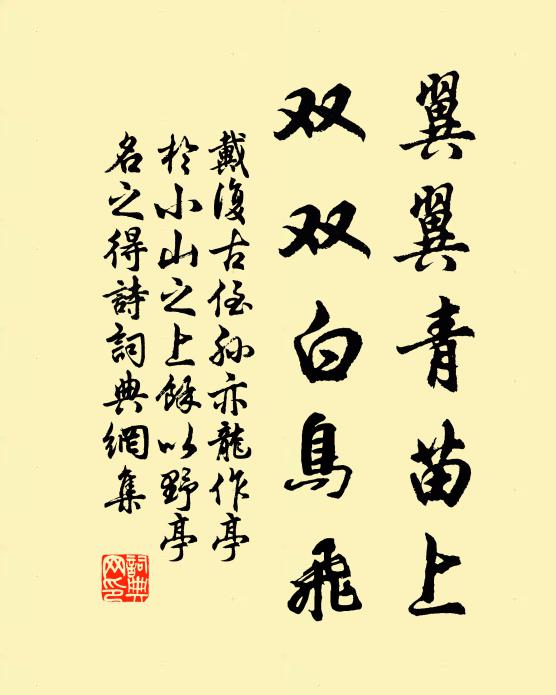 翼翼青苗上
双双白鳥飛
戴復古侄孙亦龍作亭
於小山之上餘以野亭
名之得詩詞典網集
詞典
网印